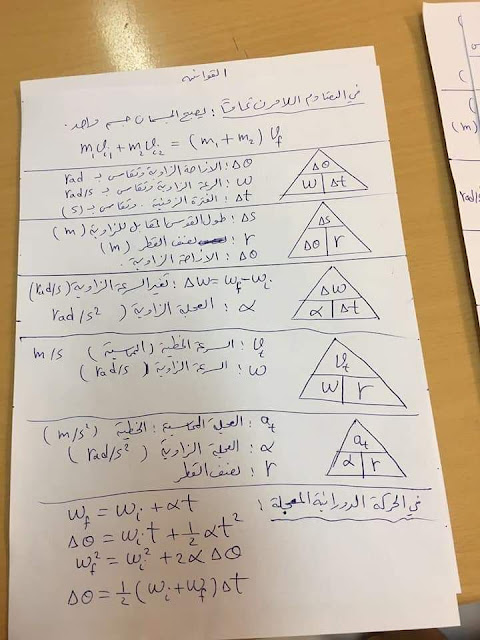 القوانين
في التصادم اللامرن تماماً : يصبح الجسمان جسم واحد.
m₁v_i1 + m₂v_i2 = (m₁ + m₂) v_f
Δθ : الازاحة الزاوية وتقاس بـ rad
ω : السرعة الزاوية وتقاس بـ rad/s
Δt : الفترة الزمنية . وتقاس بـ (s)
Δθ
ω Δt
Δs : طول القوس المقابل للزاوية (m)
r : نصف القطر (m)
Δθ : الازاحة الزاوية .
Δs
Δθ r
Δω = ω_f - ω_i : تغير السرعة الزاوية (rad/s)
α : العجلة الزاوية ( rad/s²
Δω
α Δt
v_t : السرعة الخطية (المماسية) m/s
ω : السرعة الزاوية (rad/s)
v_t
ω r
a_t : العجلة المماسية : الخطية (m/s²)
α : العجلة الزاوية (rad/s²)
r : نصف القطر
a_t
α r
في الحركة الدورانية المعجلة :
ω_f = ω_i + αt
Δθ = ω_i t + ½ αt²
ω_f² = ω_i² + 2α Δθ
Δθ = ½ (ω_i + ω_f) Δt
(m)
rad/s